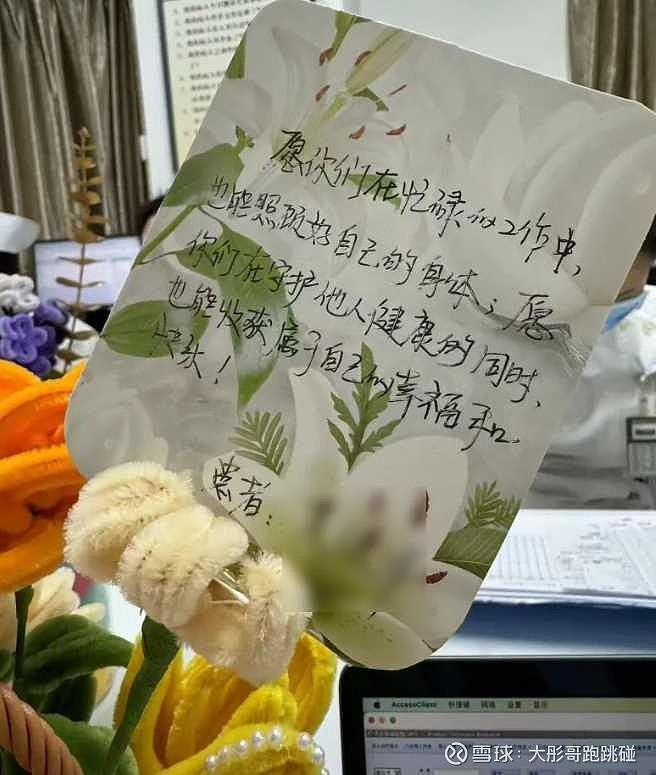 愿你们在忙碌的工作中,
也能照顾好自己的身体;愿
你们在守护他人健康的同时,
也能收获属于自己的幸福和
快乐!
患者:
AccessClient 快捷键 网络 设置 显示
雪球:大彤哥跑跳碰